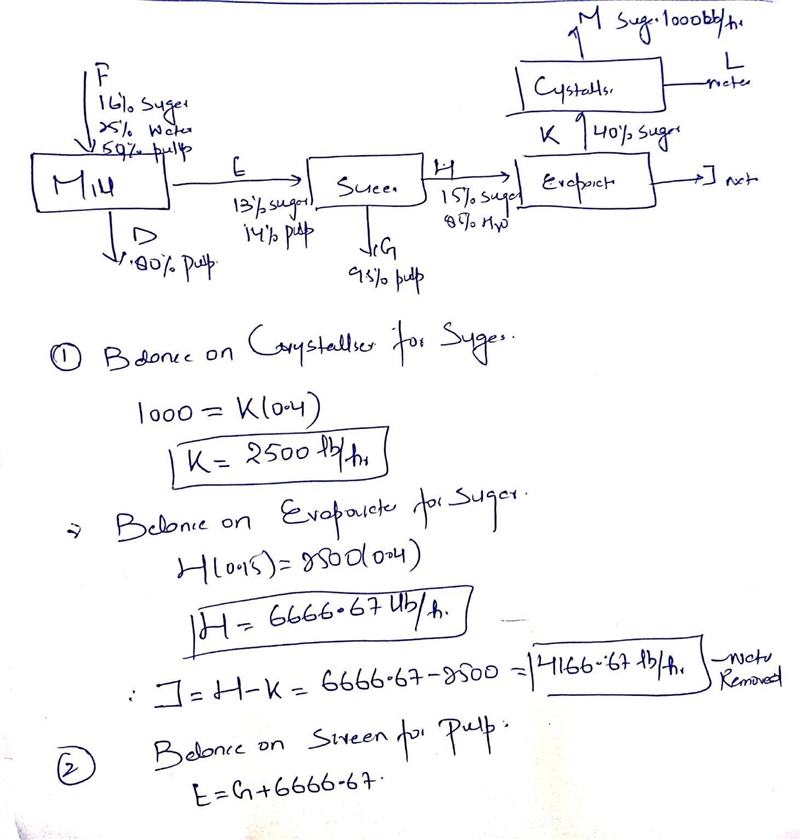 M Suger 1000lb/hr.
F
16% Suger
25% Water
59% pulp
Mill
E
13% sugar
14% pulp
D
80% Pulp.
Screen
G
95% pulp
H
15% Sugar
85% H2O
Evaporate
J
K
40% Sugar
Cystalls.
L
water
① Balance on Crystalliser for Suger.
1000 = K(0.4)
K = 2500 lb/hr
⇒ Balance on Evaporate for Sugar.
H(0.15) = 2500(0.4)
H = 6666.67 lb/h.
∴ J = H-K = 6666.67-2500 = 4166.67 lb/h.
Removed
② Balance on Screen for Pulp.
E = G + 6666.67.